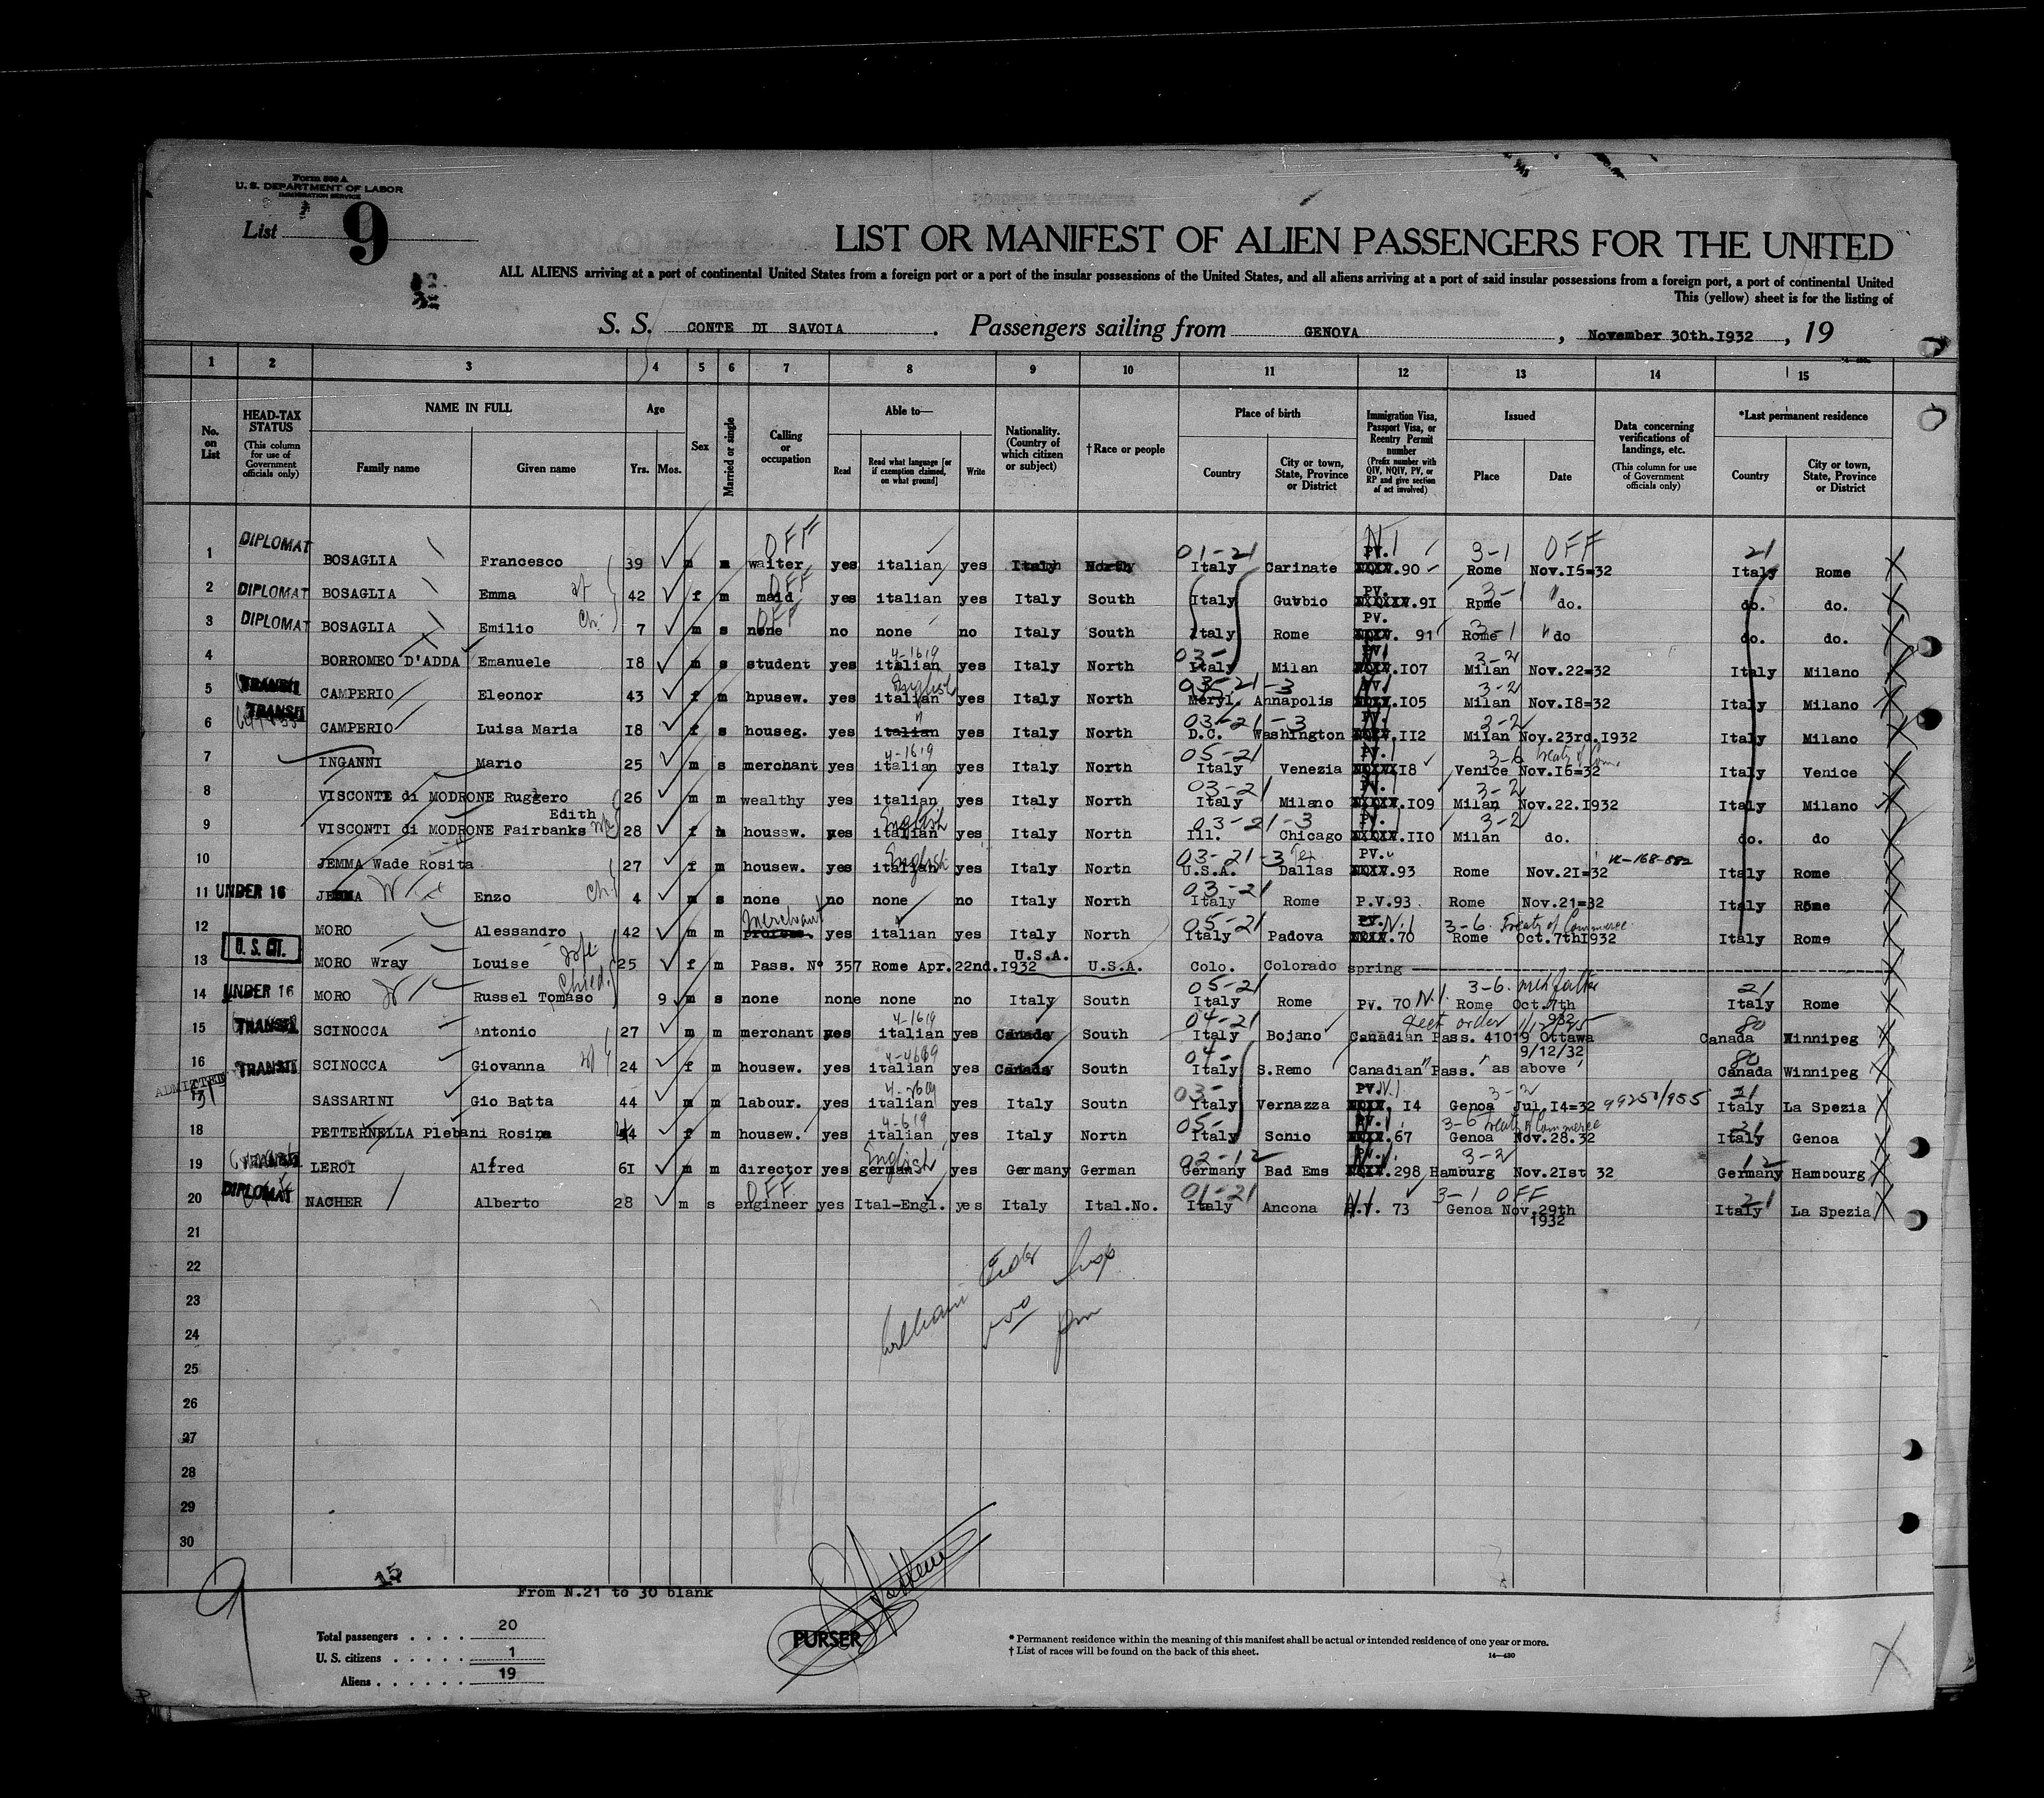 Form 500 A
U. S. DEPARTMENT OF LABOR
IMMIGRATION SERVICE
List 9
LIST OR MANIFEST OF ALIEN PASSENGERS FOR THE UNITED
ALL ALIENS arriving at a port of continental United States from a foreign port or a port of the insular possessions of the United States, and all aliens arriving at a port of said insular possessions from a foreign port, a port of continental United
This (yellow) sheet is for the listing of
S. S. CONTE DI SAVOIA. Passengers sailing from GENOVA, November 30th.I932, 19
1 2 3 4 5 6 7 8 9 10 11 12 13 14 15
No. on List
HEAD-TAX STATUS (This column for use of Government officials only)
NAME IN FULL Family name Given name
Age Yrs. Mos.
Sex
Married or single
Calling or occupation
Able to— Read Read what language [or if exemption claimed, on what ground] Write
Nationality. (Country of which citizen or subject)
†Race or people
Place of birth Country City or town, State, Province or District
Immigration Visa, Passport Visa, or Reentry Permit number (Prefix number with QIV, NQIV, PV, or RP and give section of act involved)
Issued Place Date
Data concerning verifications of landings, etc. (This column for use of Government officials only)
*Last permanent residence Country City or town, State, Province or District
OFF 01-21 PV. 3-1 OFF 21
1 DIPLOMAT BOSAGLIA Francesco 39 m m waiter yes italian yes Italy North Italy Carinate .90 Rome Nov.I5=32 Italy Rome
OFF PV. 3-1
2 DIPLOMAT BOSAGLIA Emma 42 f m maid yes italian yes Italy South Italy Gubbio .9I Rpme do. do. do.
OFF PV. 3-1
3 DIPLOMAT BOSAGLIA Emilio Ch. 7 m s none no none no Italy South Italy Rome 91 Rome do do. do.
4-1619 03- 3-2
4 BORROMEO D'ADDA Emanuele I8 m s student yes italian yes Italy North Italy Milan .I07 Milan Nov.22=32 Italy Milano
English 03-21-3 3-2
5 TRANSIT CAMPERIO Eleonor 43 f m hpusew. yes italian yes Italy North Meryl. Annapolis .I05 Milan Nov.I8=32 Italy Milano
03-21-3 3-2
6 TRANSIT CAMPERIO Luisa Maria I8 f s houseg. yes italian yes Italy North D.C. Washington .II2 Milan Nov.23rd.I932 Italy Milano
4-1619 05-21 PV. 3-6 Treaty of Com.
7 INGANNI Mario 25 m s merchant yes italian yes Italy North Italy Venezia I8 Venice Nov.I6=32 Italy Venice
03-21 3-2
8 VISCONTI di MODRONE Ruggero 26 m m wealthy yes italian yes Italy North Italy Milano .I09 Milan Nov.22.I932 Italy Milano
Edith English 03-21-3 3-2
9 VISCONTI di MODRONE Fairbanks 28 f m houssw. yes italian yes Italy North Ill. Chicago .II0 Milan do. do. do
English 03-21-3 Tex PV. 
10 JEMMA Wade Rosita 27 f m housew. yes italian yes Italy North U.S.A. Dallas .93 Rome Nov.2I=32 Italy Rome
03-21
11 UNDER 16 JEMMA Enzo Ch. 4 m s none no none no Italy North Italy Rome P.V.93 Rome Nov.21=32 Italy Rome
Merchant 05-21 PV. 3-6. Treaty of Commerce
12 MORO Alessandro 42 m m yes italian yes Italy North Italy Padova .70 Rome Oct.7thI932 Italy Rome
13 U. S. CIT. MORO Wray Louise Wife 25 f m Pass. Nº 357 Rome Apr.22nd.I932 U.S.A. U.S.A. Colo. Colorado spring
Child. 05-21 3-6. 21
14 UNDER 16 MORO Russel Tomaso 9 m s none none none no Italy South Italy Rome PV. 70 N.I. Rome Oct.7th 932 Italy Rome
4-1619 04-21 80
15 TRANSIT SCINOCCA Antonio 27 m m merchant yes italian yes Canada South Italy Bojano Canadian Pass. 41019 Ottawa Canada Winnipeg
04- 9/12/32 80
16 TRANSIT SCINOCCA Giovanna 24 f m housew. yes italian yes Canada South Italy S.Remo Canadian Pass. as above Canada Winnipeg
ADMITTED 03- PV. 3-2 21
SASSARINI Gio Batta 44 m m labour. yes italian yes Italy South Italy Vernazza I4 Genoa Jul.I4=32 Italy La Spezia
4-619 05- PV. 3-6 Treaty of Commerce
18 PETTERNELLA Plebani Rosina 44 f m housew. yes italian yes Italy North Italy Schio .67 Genoa Nov.28.32 Italy Genoa
English 02-12 3-2 12
19 TRANSIT LEROI Alfred 6I m m director yes german yes Germany German Germany Bad Ems .298 Hamburg Nov.2Ist 32 Germany Hambourg
OFF 01-21 3-1 OFF 21
20 DIPLOMAT NACHER Alberto 28 m s engineer yes Ital-Engl. yes Italy Ital.No. Italy Ancona 73 Genoa Nov.29th 1932 Italy La Spezia
21
22
23
24
25
26
27
28
29
30
9
15
From N.21 to 30 blank
Total passengers . . . . 20
U. S. citizens . . . . . 1
Aliens . . . . . . 19
PURSER
* Permanent residence within the meaning of this manifest shall be actual or intended residence of one year or more.
† List of races will be found on the back of this sheet.
14—430